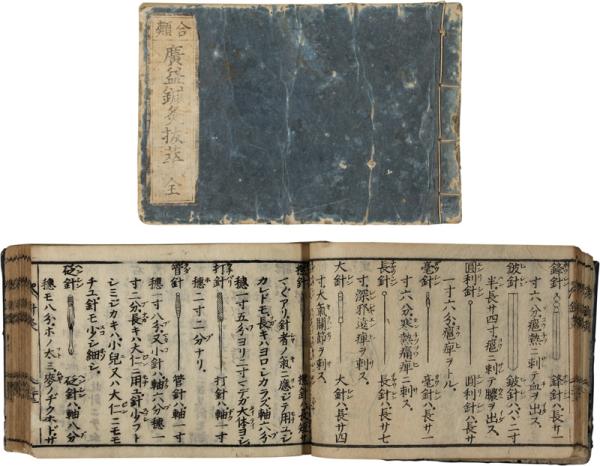 合類
廣益鍼灸抜萃 全
鋒針 鋒針ハ長サ一
寸六分癰熱ニ刺テ血ヲ出ス。
鈹針 鈹針ハハヾ二寸
半長サ四寸癰ニ刺テ膿ヲ出ス
圓利針 圓利針ハ長サ
一寸六分癰痺ヲトル。
毫針 毫針ハ長サ一
寸六分寒熱痛痺ニ刺ス
長針 長針ハ長サ七
寸深邪遠痺ヲ刺ス。
大針 大針ハ長サ四
寸大氣關節ヲ刺ス。
マ〲アリ針者ノ氣ニ應ジテ用ユ
カレドモ長キハヨロシカラズ軸六分
穂一寸五分ヨリ二寸マデガ大体ヨシ
打針 打針ハ軸一寸
穂二寸二分ナリ。
管針 管針ハ軸一寸
穂一寸八分又小針ハ軸六分穂一
寸二分長キハ大仁ニ用ユ針少フト
シミジカキハ小兒又ハ大仁ニモモ
チユ針モ少シ細シ。
砭針 砭針ハ軸八分
穂モ八分